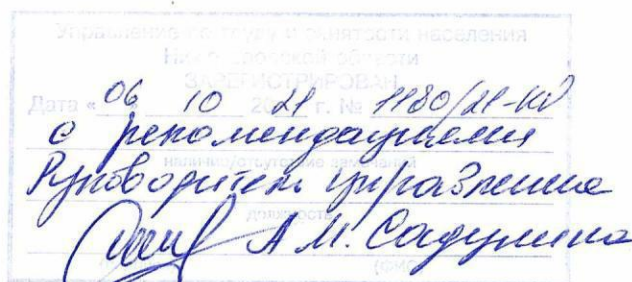 Управление по труду и занятости населения
Нижегородской области
ЗАРЕГИСТРИРОВАН
Дата «06» 10 2021 г. № 1180/21-КД
с рекомендациями
наличие/отсутствие замечаний
Руководитель управления
должность
А.М. Садулина
(ФИО)